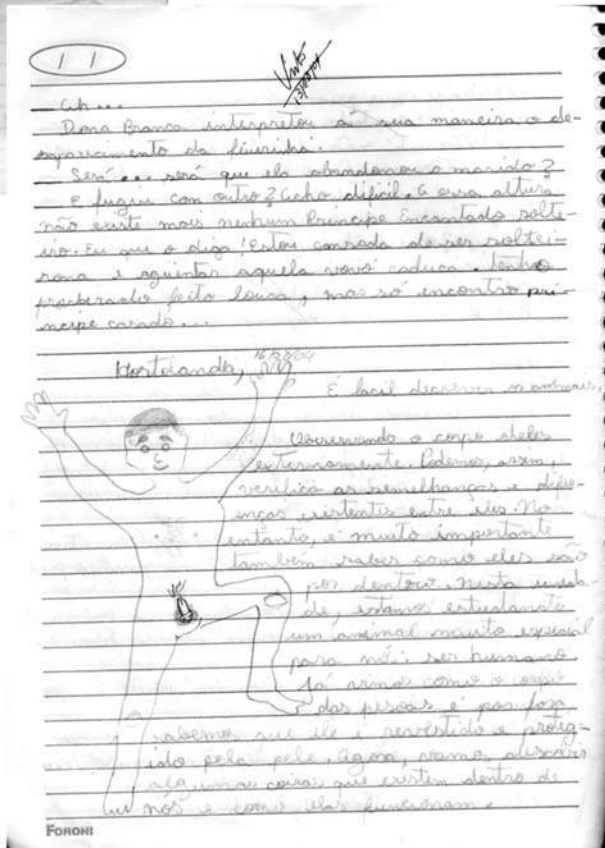 11
Visto
Ah...
Dona Branca interpretou á sua maneira o de-
saparecimento da feiurinha.
Será... será que ela abandonou o marido?
E fugiu com outro? Acho dificil. A essa altura
não existe mais nenhum Principe Encantado soltei-
iro. Eu que o diga! Estou cansada de ser soltei-
rona e aguentar aquela vovó caduca. Tenho
procurado feito louca, mas só encontro prin-
cipe casado...
Hortolandia, 16/02/04
É facil descrever os animais,
observando o corpo deles
externamente. Podemos, assim,
verifica as semelhanças e dife-
renças existentes entre eles. No
entanto, é muito importante
também saber como eles são
por dentoro. Nesta unida-
de, estamos estudando
um animal muito especial
para nó: ser humano
Já vimos como o corpo
das pessoas é por fora,
sabemos que ele é revestido e proteg-
ido pela pele. Agora, vamos discurir
algumas coisas que existem dentro de
nós e como elas funcionam.
FORONI